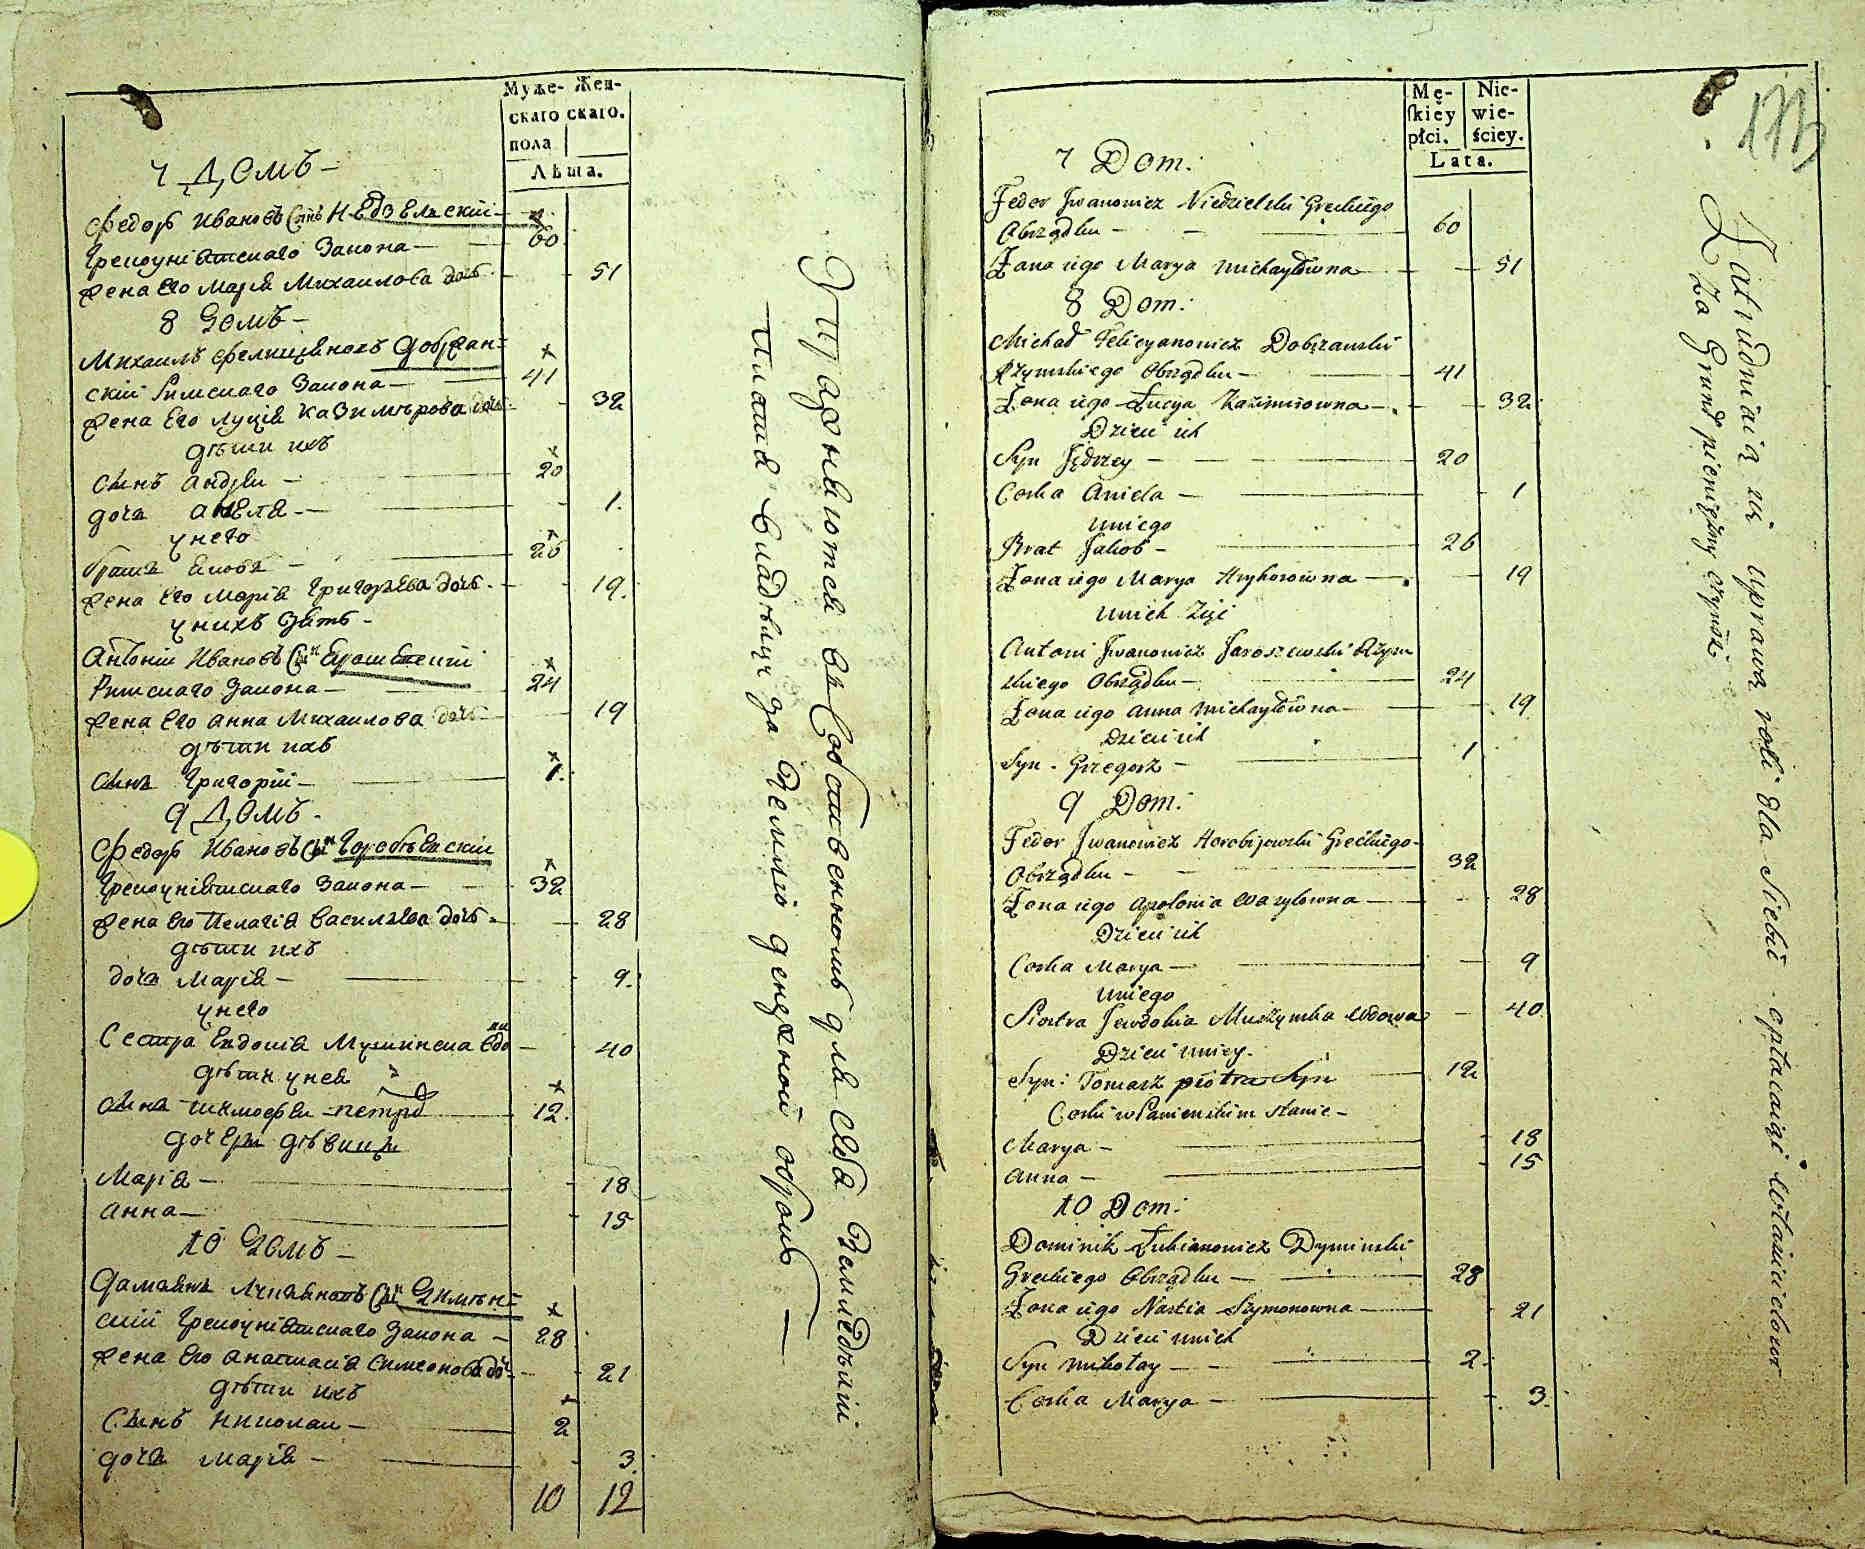 Муже- Жен-
скаго скаго.
пола
Лѣта.
7 Домъ —
Федоръ Ивановъ Сынъ Недзельскій —
Грекоуніатскаго Закона — 60
Жена Его Марія Михайлова дочь — 51
8 Домъ —
Михаилъ Фелиціановъ Добржан-
скій Римскаго Закона — 41
Жена Его Луція Казимѣрова дочь — 32
дѣти ихъ
Сынъ Андрей — 20
дочь Анеля — 1.
у него
братъ Якобъ — 26
Жена Его Марія Григорьева дочь — 19.
у нихъ Зять —
Антоній Ивановъ Сынъ Ярошевскій
Римскаго Закона — 24
Жена Его Анна Михайлова дочь — 19
дѣти ихъ
Сынъ Григорій — 1.
9 Домъ.
Федоръ Ивановъ Сынъ Горобіевскій
Грекоуніатскаго Закона — 32
Жена Его Пелагія Васильева дочь — 28
дѣти ихъ
дочь Марія — 9.
у него
Сестра Евдокія — 40
дѣти у нея
Сынъ Тимофей Петръ 12.
дочери дѣвицы
Марія — 18
Анна — 15
10 Домъ —
Сынъ Дымѣн-
скій Грекоуніатскаго Закона — 28
Жена Его Анастасія Симеонова дочь — 21
дѣти ихъ
Сынъ Николай — 2
дочь Марія — 3.
10 12
Упражняются въ Собственномъ для себя Земледѣліи
Платя Владѣльцу за Землю денежной оброкъ —
Mę- Nie-
skiéy wie-
płci. ściey.
Lata.
7 Dom:
Fedor Jwanowicz Niedzielski Greckiego
Obrządku — 60
Żona iego Marya Michayłowna — 51
8 Dom:
Michał Felicyanowicz Dobrzański
Rzymskiego Obrządku — 41
Żona iego Łucya Kazimirowna — 32
Dzieci ich
Syn Jędrzey — 20
Corka Aniela — 1
u niego
Brat Jakob — 26
Żona iego Marya Hryhorowna — 19
u nich Zięć
Antoni Jwanowicz Jaroszewski Rzym
skiego Obrządku — 24
Żona iego Anna Michayłowna — 19
Dzieci ich
Syn Grzegorz — 1
9 Dom:
Fedor Jwanowicz Horobijowski Greckiego
Obrządku — 32
Żona iego Apolonia Wasylowna — 28
Dzieci ich
Corka Marya — 9
u niego
Siostra Jewdokia Muszyńska Wdowa — 40
Dzieci u niey.
Syn: Tomasz piotra Syn 12
Corki w Panieńskim stanie —
Marya — 18
Anna — 15
10 Dom:
Dominik Łukianowicz Dyminski
Greckiego Obrządku — 28
Żona iego Nastia Szymonowna — 21
Dzieci u nich
Syn Mikołay — 2
Corka Marya — 3.
Zatrudniaią się uprawą roli dla Siebie opłacaiąc właścicielowi
Za Grunt pieniężny czynsz